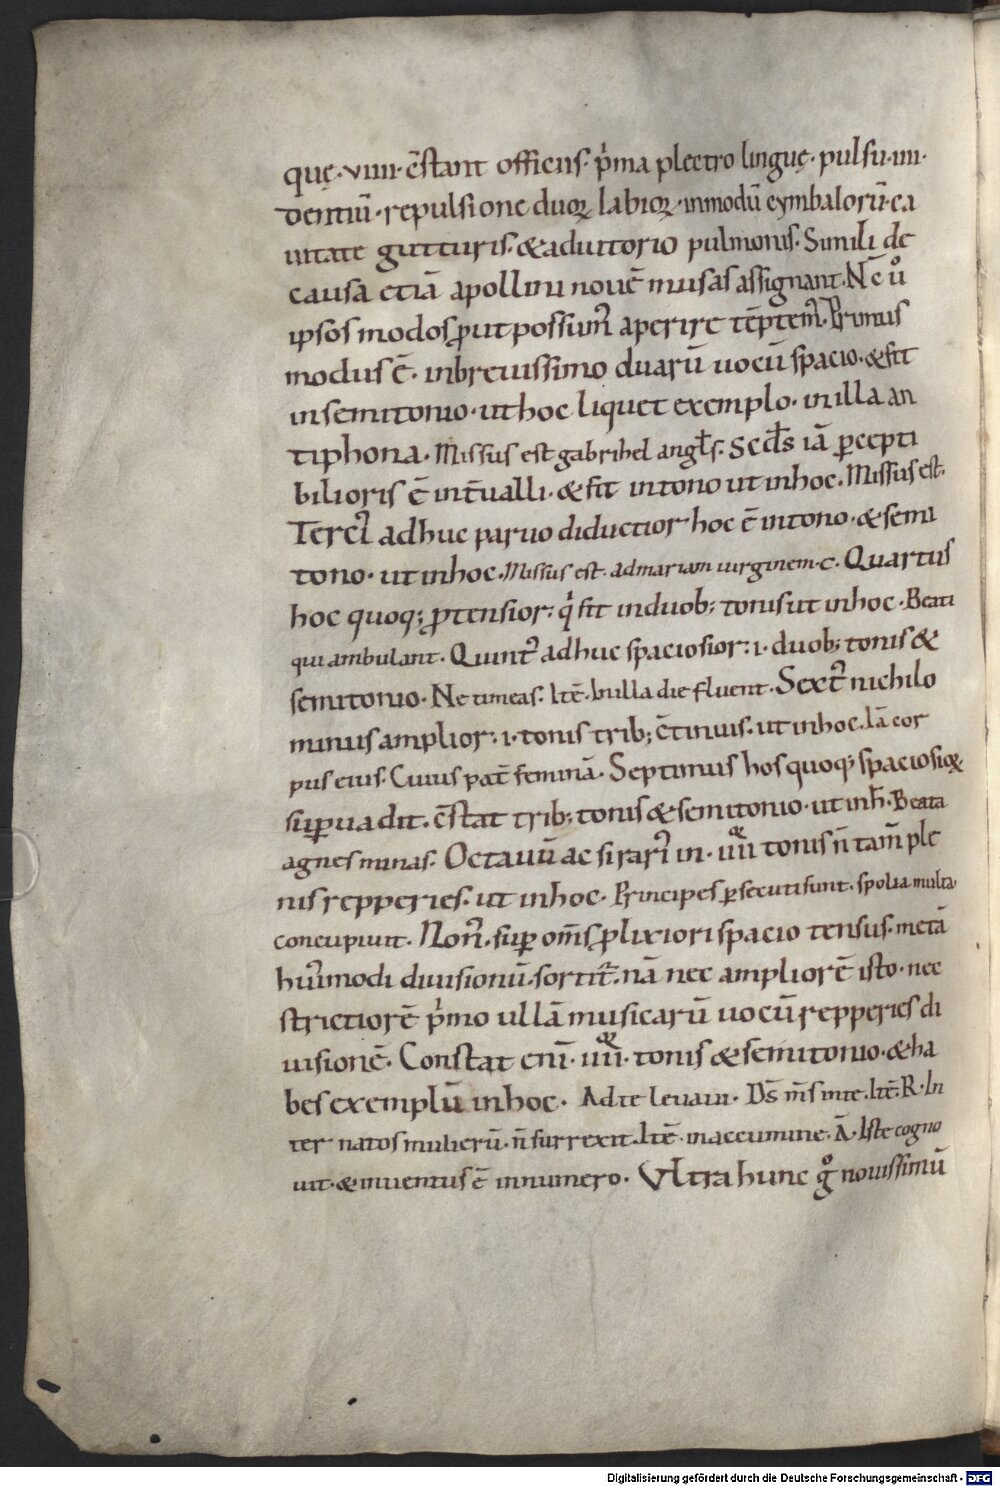 quę · viiii · c̄stant officiis · p̍ma plectro linguę · pulsu · iiii ·
dentiū · repulsione duoꝝ labioꝝ · inmodū cymbalorū · ca
uitate gutturis · & adiutorio pulmonis · Simili de
causa etiā apollini nouē musas assignant · N̄c ůo
ipsos modos ꝓut possum᷒ aperire tēptem᷒ · Primus
modus ē · inbreuissimo duarū uocū spacio · & fit
insemitonio · ut hoc liquet exemplo · in illa an
tiphona · Missus est gabrihel angl̄s · Sc̄ds iā ꝑcepti
bilioris ē int̄ualli · & fit intono ut inhoc · Missus est ·
Terci᷒ adhuc paruo diductior hoc ē intono · & semi
tono · ut inhoc · Missus est · admariam uirginem · c · Quartus
hoc quoq; ꝓtensior : q̍ fit induob; tonis ut inhoc · Beati
qui ambulant · Quint᷒ adhuc spaciosior : i · duob; tonis &
semitonio · Ne timeas · Itē · bulla die fluent · Sext᷒ nichilo
minus amplior : i · tonis trib; c̄tinuis · ut inhoc · Iā cor
pus eius · Cuius pat̄ feminā · Septimus hos quoq; spaciosiꝰ
suꝑuadit · c̄stat trib; tonis & semitonio · ut inh̄ · Beata
agnes minas · Octauū ac si rari᷒ in · iiii tonis n̄ tam̄ ple
nis repperies · ut inhoc · Principes ꝑsecuti sunt · spolia multa ·
concupiuit · Non᷒ · suꝑ om̄s ꝓlixiori spacio tensus · metā
hui᷒modi diuisionū · sortit᷒ · nā nec ampliorē isto · nec
strictiorē p̍mo ullā musicarū uocū repperies di
uisionē · Constat eni̅ · iiii · tonis & semitonio · & ha
bes exemplū inhoc · Ad te leuaui · Ds̄ m̄s inte · Itē · R · In
ter natos mulierū · n̄ surrexit · Itē · inaccumine · Ā · Iste cogno
uit · & inuentus ē innumero · Vltra hunc g̊ nouissimū
Digitalisierung gefördert durch die Deutsche Forschungsgemeinschaft - DFG